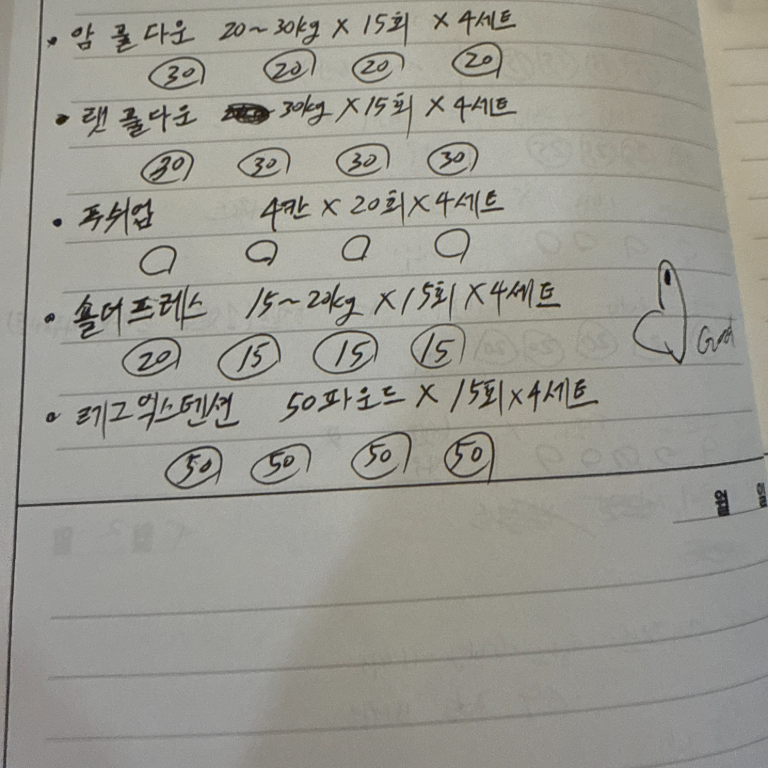 • 암 풀 다운 20~30kg × 15회 × 4세트
30 20 20 20
• 랫 풀다운 30kg × 15회 × 4세트
30 30 30 30
• 푸쉬업 4칸 × 20회 × 4세트
• 숄더프레스 15~20kg × 15회 × 4세트
20 15 15 15
Good
• 레그익스텐션 50파운드 × 15회 × 4세트
50 50 50 50